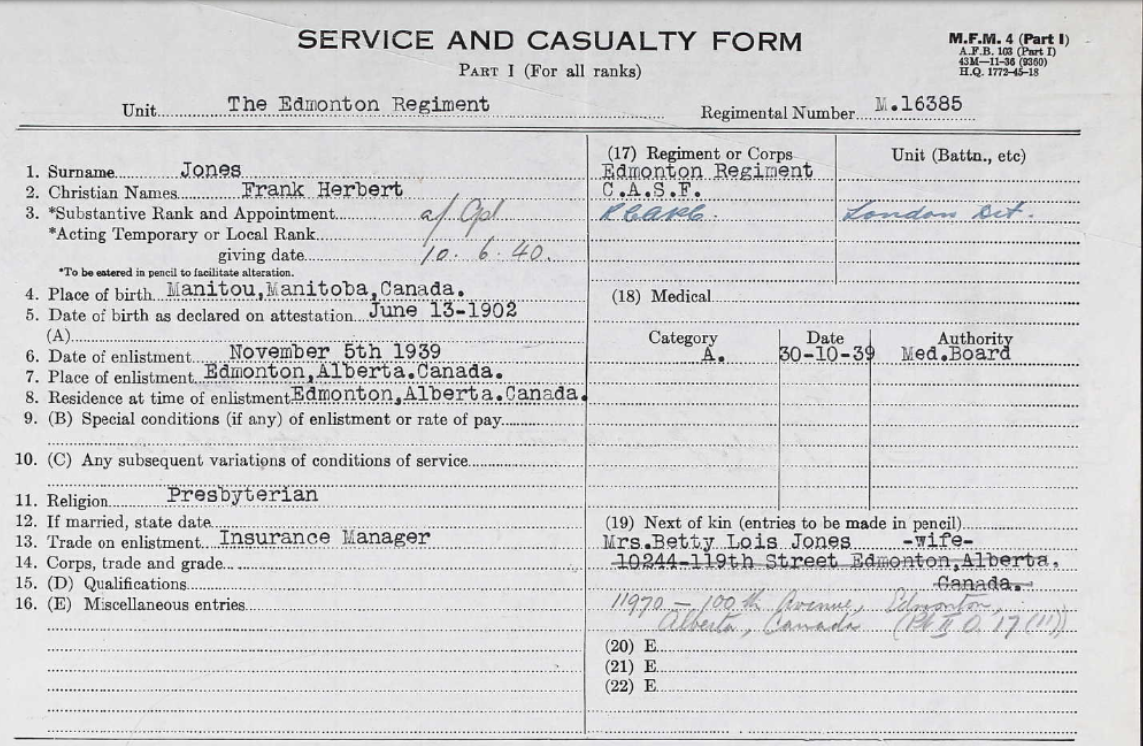 SERVICE AND CASUALTY FORM
PART I (For all ranks)
M.F.M. 4 (Part I)
A.F.B. 103 (Part I)
43M—11-36 (9360)
H.Q. 1772-45-18
Unit The Edmonton Regiment
Regimental Number M.16385
1. Surname Jones
2. Christian Names Frank Herbert
3. *Substantive Rank and Appointment a/Cpl
*Acting Temporary or Local Rank
giving date 10. 6. 40.
*To be entered in pencil to facilitate alteration.
4. Place of birth Manitou,Manitoba,Canada.
5. Date of birth as declared on attestation June 13-1902
(A)
6. Date of enlistment November 5th 1939
7. Place of enlistment Edmonton,Alberta.Canada.
8. Residence at time of enlistment Edmonton,Alberta.Canada.
9. (B) Special conditions (if any) of enlistment or rate of pay
10. (C) Any subsequent variations of conditions of service
11. Religion Presbyterian
12. If married, state date
13. Trade on enlistment Insurance Manager
14. Corps, trade and grade
15. (D) Qualifications
16. (E) Miscellaneous entries
(17) Regiment or Corps Unit (Battn., etc)
Edmonton Regiment
C.A.S.F.
London Det.
(18) Medical
Category Date Authority
A. 30-10-39 Med.Board
(19) Next of kin (entries to be made in pencil)
Mrs.Betty Lois Jones -wife-
10244-119th Street Edmonton,Alberta.
Canada.
11970 – 100th Avenue, Edmonton,
Alberta, Canada (Pt II O. 17 (11))
(20) E
(21) E
(22) E